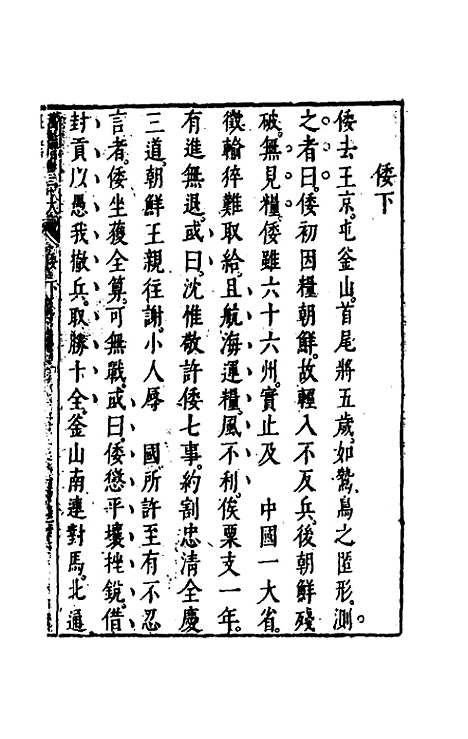 倭下
倭去王京。屯釜山。首尾將五歲。如鷙鳥之匿形。測
之者曰。倭初因糧朝鮮。故輕入不反兵。後朝鮮殘
破。無見糧。倭雖六十六州。實止及　中國一大省。
徵輸猝難取給。且航海運糧。風不利。俟粟支一年。
有進無退。或曰。沈惟敬許倭七事。約割忠清全慶
三道。朝鮮王親往謝。小人辱　國所許至有不忍
言者。倭坐獲全算。可無戰。或曰。倭懲平壤挫銳。借
封貢以愚我撤兵。取勝十全。釜山南連對馬。北通